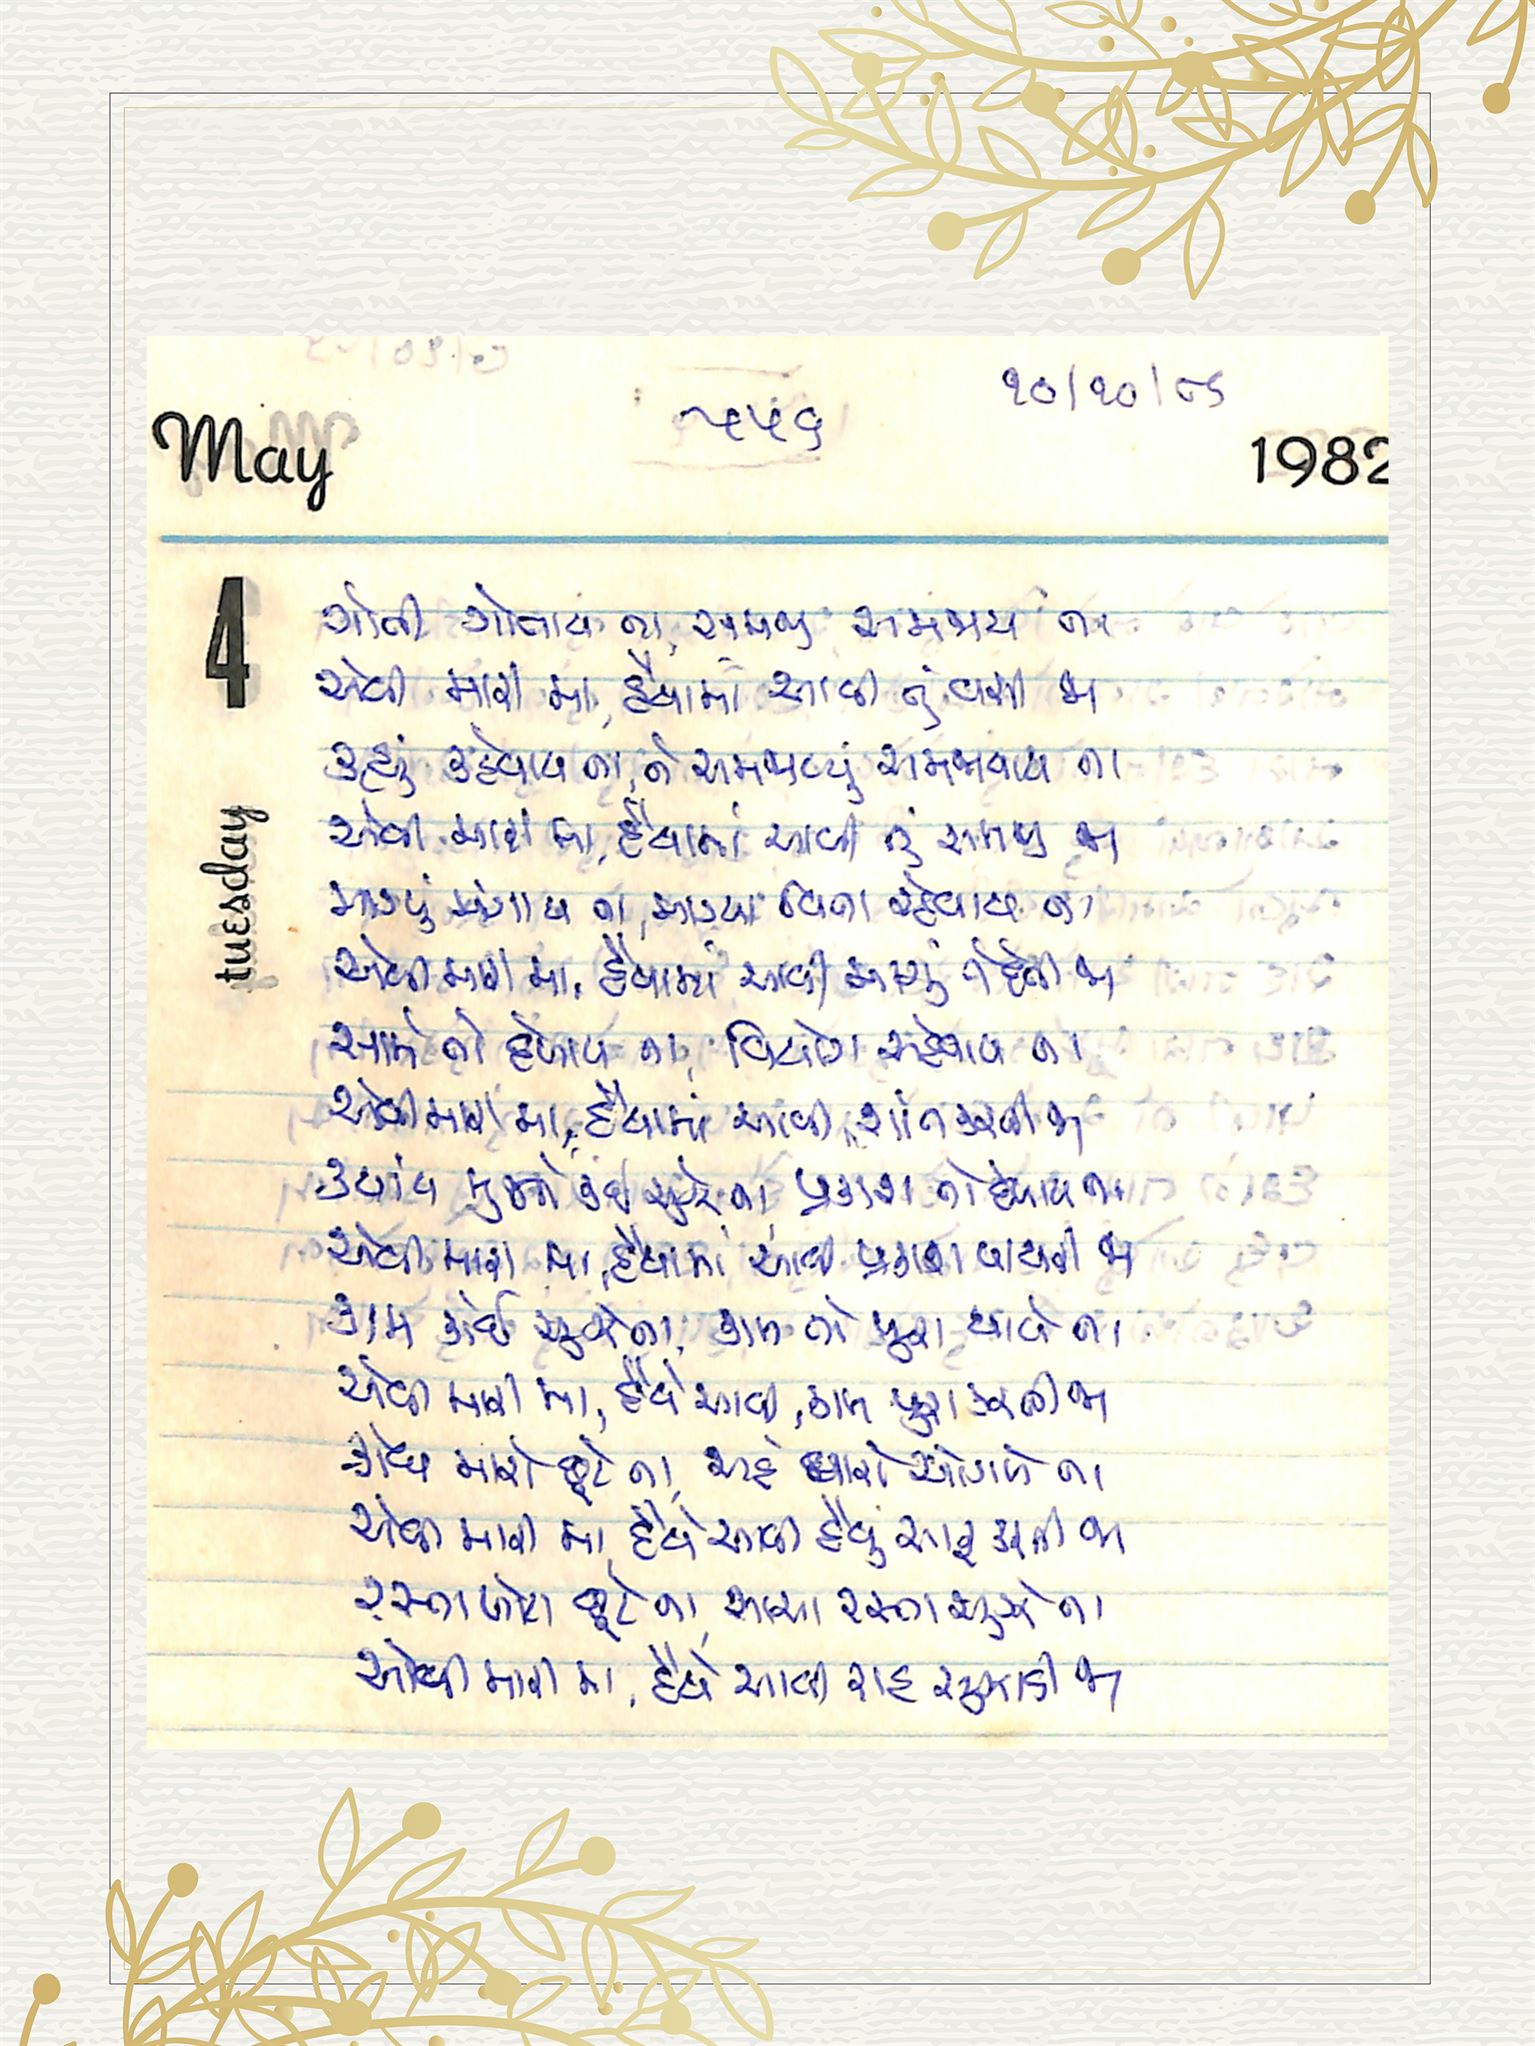 ૧૦/૧૦/૮૬
May
1982
4
tuesday
ગોતી ગોતાય ના, સમજી સમજાય ના
એવી મારી મા, હૈયામાં આવી તું વસી જા
કહ્યું કહેવાય ના, ને સમજાવ્યું સમજાવાય ના
એવી મારી મા, હૈયામાં આવી તું સમજી જા
માગ્યું મંગાય ના, માગ્યા વિના રહેવાય ના
એવી મારી મા, હૈયામાં આવી માગ્યું તે દેતી જા
સામે તો દેખાય ના, વિયોગ સહેવાય ના
એવી મારી મા, હૈયામાં આવી, શાંત કરતી જા
ક્યાંય મુજને કંઈ સુઝે ના, પ્રકાશ તો દેખાય ના
એવી મારી મા, હૈયામાં આવી પ્રકાશ પાથરી જા
કામ કોઈ સુઝે ના, કામ તો પુરા થાયે ના
એવી મારી મા, હૈયે આવી, કામ પુરા કરતી જા
ક્રોધ મારો છૂટે ના, અહં મારો ઓગળે ના
એવી મારી મા, હૈયે આવી હૈયું સાફ કરતી જા
રસ્તા ખોટા છૂટે ના, સાચા રસ્તા સુઝે ના
એવી મારી મા, હૈયે આવી રાહ સુઝાડી જા